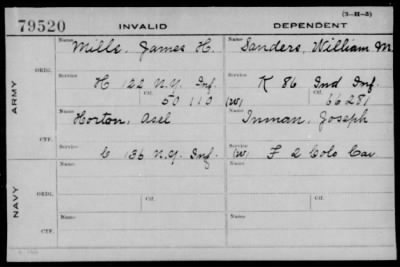 (3-H-3)
79520 INVALID DEPENDENT
ARMY ORIG. Name Mills, James H. Name Sanders, William M
Service H 122 N.Y. Inf. Service K 86 Ind Inf.
Ctf. 50110 (W) Ctf. 66281
CTF. Name Horton, Asel Name Inman, Joseph
Service C 136 N.Y. Inf. (W) Service F 2 Colo Cav
NAVY ORIG. Name Ctf. Name Ctf.
Service Service
CTF. Name Name
Service Service